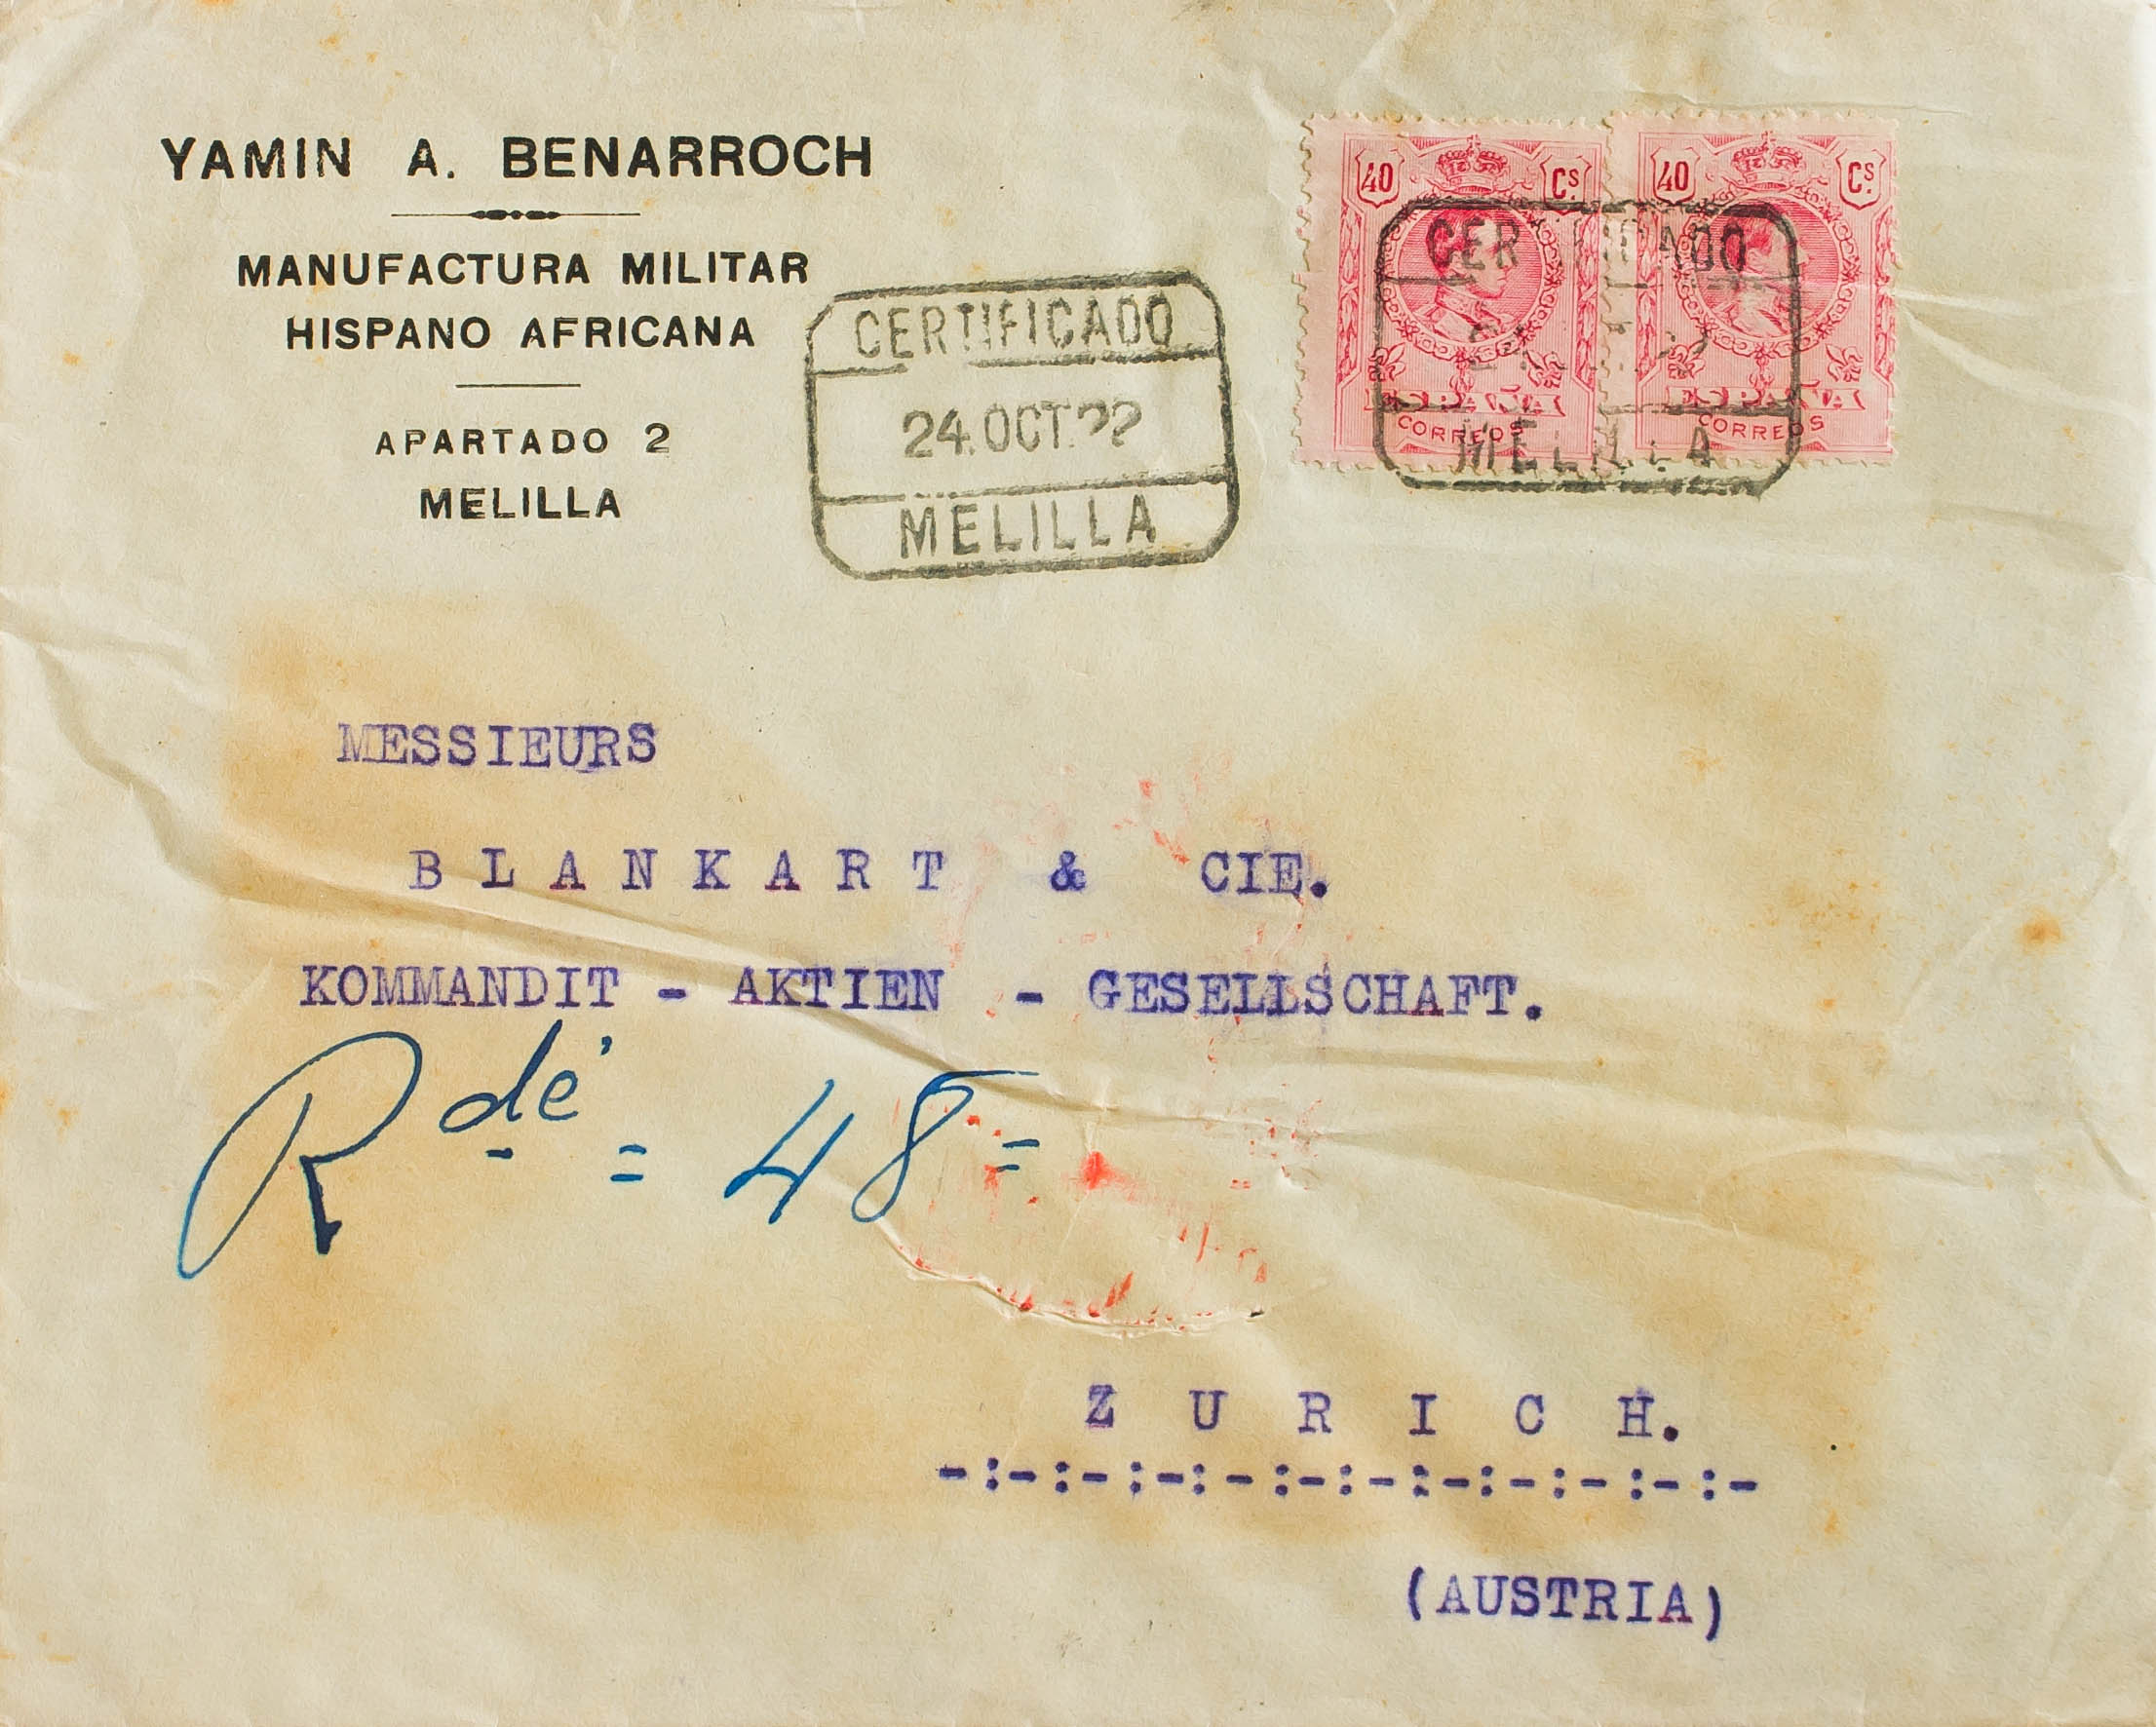 YAMIN A. BENARROCH
MANUFACTURA MILITAR
HISPANO AFRICANA
APARTADO 2
MELILLA
CERTIFICADO
24.OCT.22
MELILLA
40 Cs.
ESPAÑA
CORREOS
40 Cs.
ESPAÑA
CORREOS
CERTIFICADO
MELILLA
MESSIEURS
BLANKART & CIE.
KOMMANDIT - AKTIEN - GESELLSCHAFT.
Rdé = 48 =
ZURICH.
-:-:-:-:-:-:-:-:-:-:-:-
(AUSTRIA)